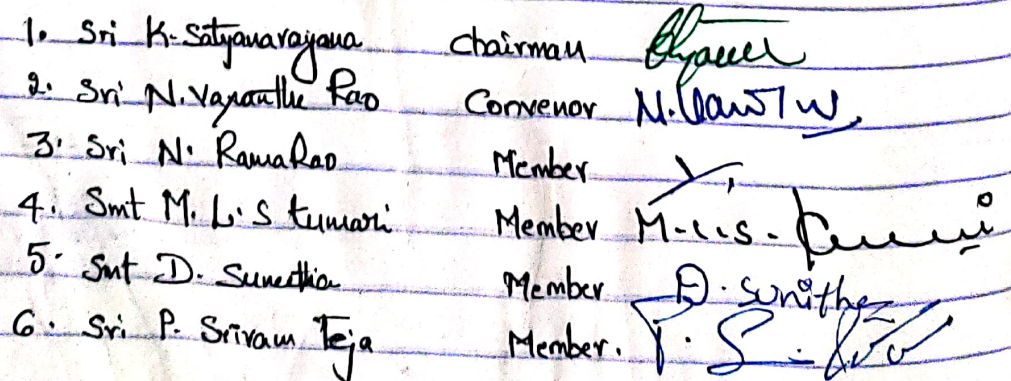 1. Sri K. Satyanarayana Chairman
2. Sri N. Vasantha Rao Convenor
3. Sri N. Rama Rao Member
4. Smt M. L. S Kumari Member M.L.S.
5. Smt D. Suneetha Member D. Sunitha
6. Sri P. Srivam Teja Member. P. S.